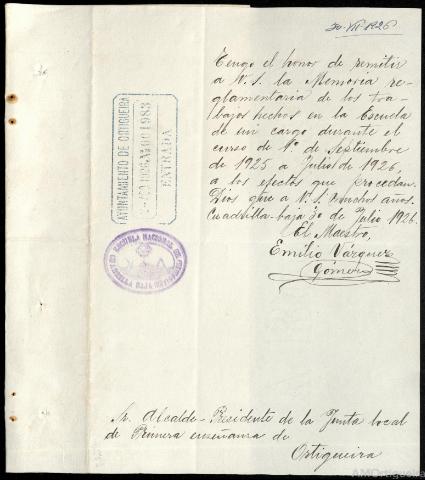 30-VII-1926
Tengo el honor de remitir
a V. S. la Memoria re-
glamentaria de los tra-
bajos hechos en la Escuela
de mi cargo durante el
curso de 1º de Septiembre
de 1925 a Julio de 1926
a los efectos que procedan.
Dios gue a V. S. muchos anos.
Cuadrilla-baja 30 de Julio 1926.
El Maestro,
Emilio Vázquez
Gómez
AYUNTAMIENTO DE ORTIGUEIRA
1983
ENTRADA
ESCUELA NACIONAL DE
BAJA
Sr. Alcalde-Presidente de la Junta local
de Primera enseñanza de
Ortigueira
AMOrtigueira